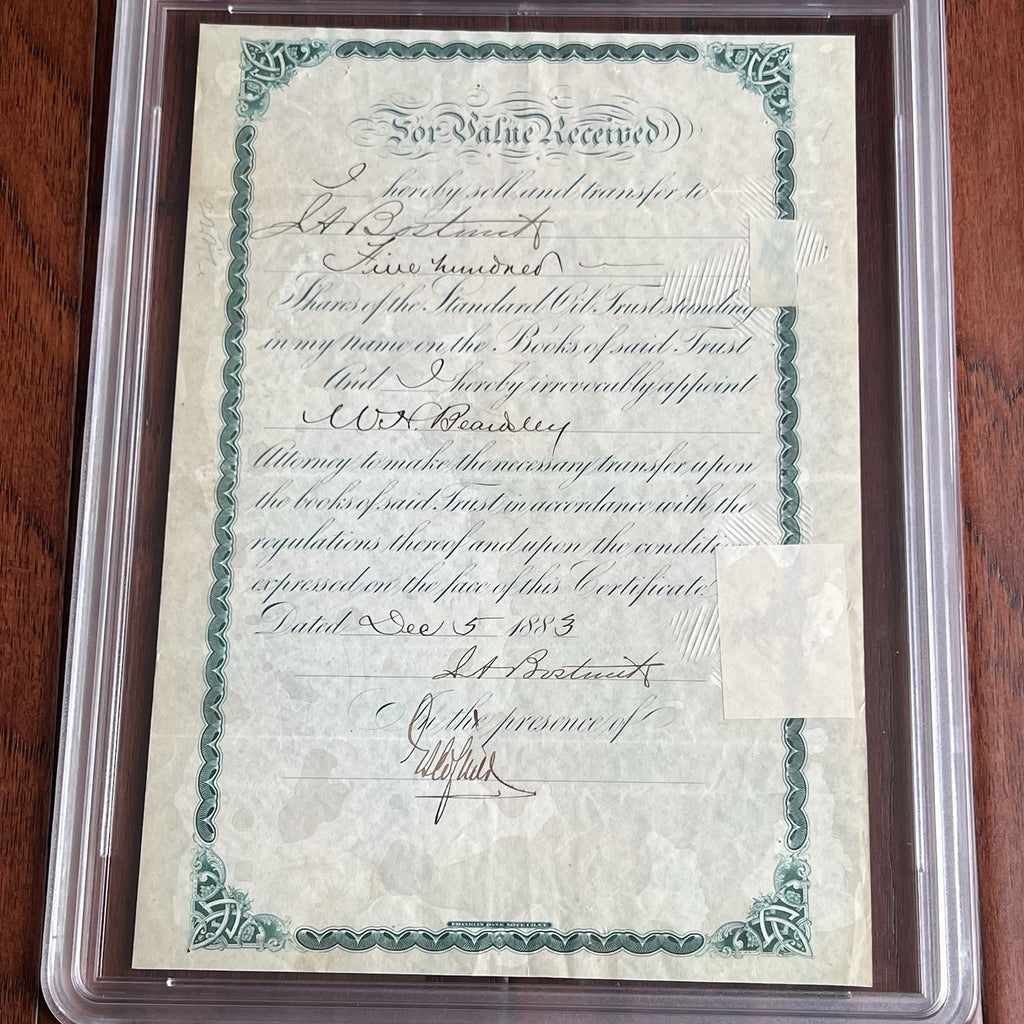 For Value Received
I hereby sell and transfer to
J A Bostwick
Five hundred
Shares of the Standard Oil Trust standing
in my name on the Books of said Trust
And I hereby irrevocably appoint
W. H. Beardsley
Attorney to make the necessary transfer upon
the books of said Trust in accordance with the
regulations thereof and upon the conditi
expressed on the face of this Certificate
Dated Dec 5 1883
J A Bostwick
In the presence of
FRANKLIN BANK NOTE CO. N.Y.